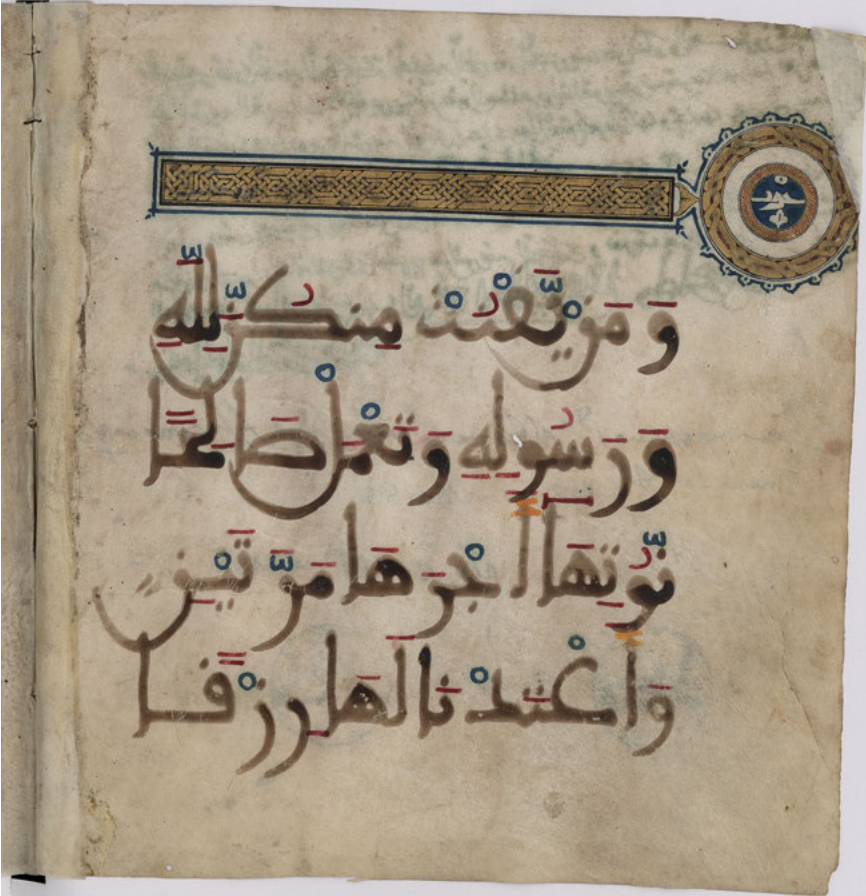 وَمَنْ يَّقْنُتْ مِنكُنَّ لِلَّهِ
وَرَسُولِهِ وَتَعْمَلْ صَالِحًا
نُّوتِهَا أَجْرَهَا مَرَّتَيْنِ
وَأَعْتَدْنَا لَهَا رِزْقًا